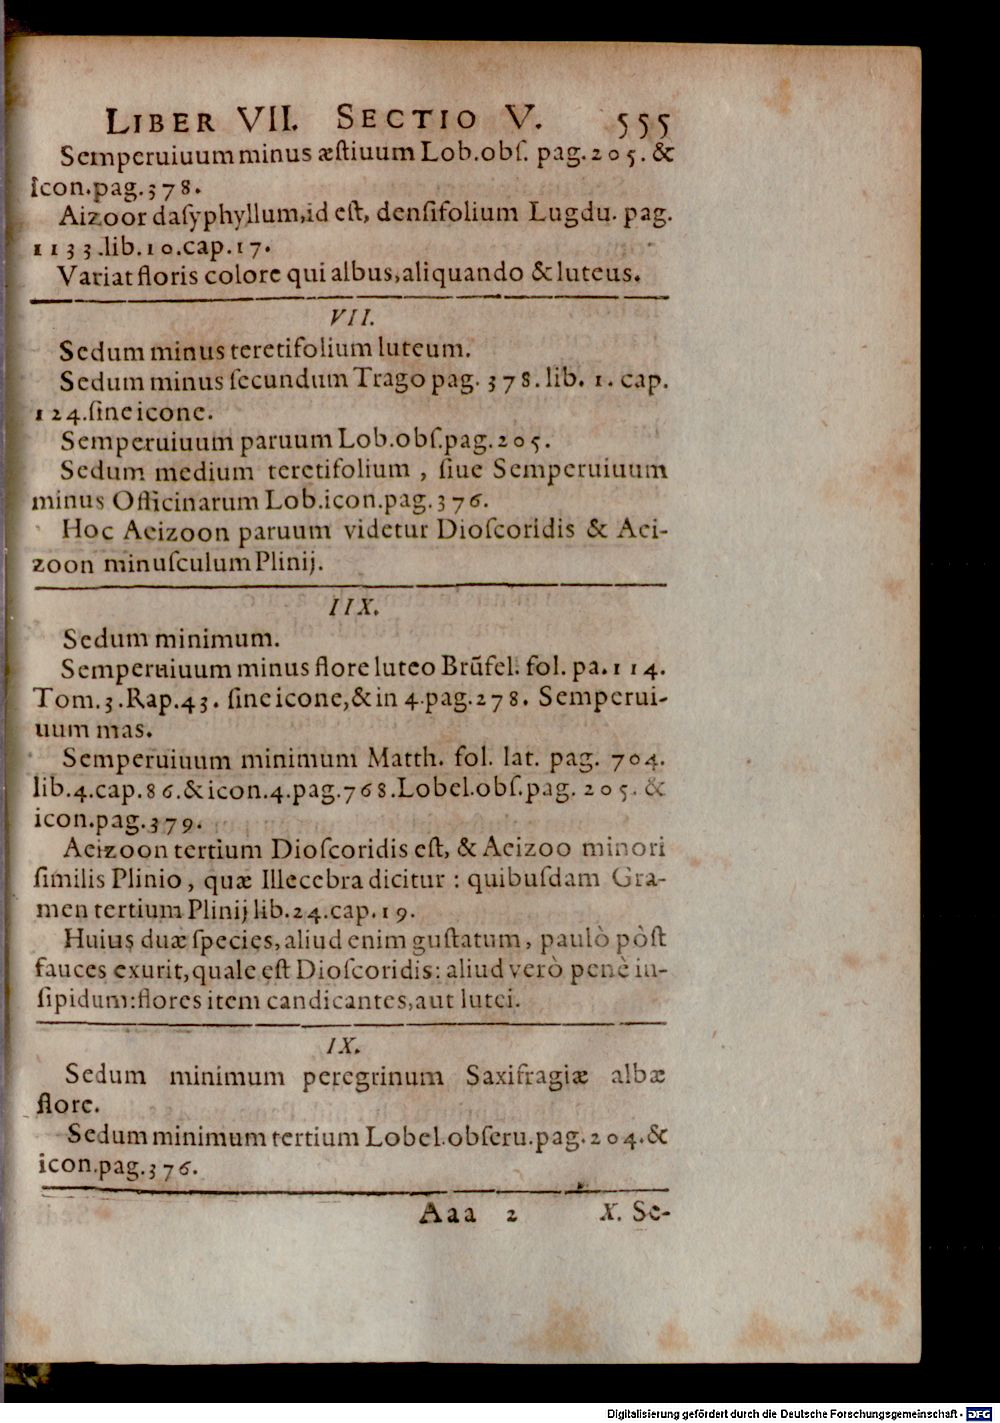 LIBER VII. SECTIO V. 555
Semperuiuum minus æstiuum Lob.obſ. pag.205.&
icon.pag.378.
Aizoor daſyphyllum,id eſt, denſifolium Lugdu. pag.
1133.lib.10.cap.17.
Variat floris colore qui albus,aliquando & luteus.
VII.
Sedum minus teretifolium luteum.
Sedum minus ſecundum Trago pag. 378. lib. 1. cap.
124.ſine icone.
Semperuiuum paruum Lob.obſ.pag.205.
Sedum medium teretifolium , ſiue Semperuiuum
minus Officinarum Lob.icon.pag.376.
Hoc Aeizoon paruum videtur Dioſcoridis & Aei-
zoon minuſculum Plinij.
IIX.
Sedum minimum.
Semperuiuum minus flore luteo Brũfel. fol. pa.114.
Tom.3.Rap.43. ſine icone,& in 4.pag.278. Semperui-
uum mas.
Semperuiuum minimum Matth. fol. lat. pag. 704.
lib.4.cap.86.& icon.4.pag.768.Lobel.obſ.pag. 205. &
icon.pag.379.
Aeizoon tertium Dioſcoridis eſt, & Aeizoo minori
ſimilis Plinio, quæ Illecebra dicitur : quibuſdam Gra-
men tertium Plinij lib.24.cap.19.
Huius duæ ſpecies,aliud enim guſtatum, paulò pòſt
fauces exurit,quale eſt Dioſcoridis: aliud verò penè in-
ſipidum:flores item candicantes,aut lutei.
IX.
Sedum minimum peregrinum Saxifragiæ albæ
flore.
Sedum minimum tertium Lobel.obſeru.pag.204.&
icon.pag.376.
Aaa 2 X. Se-
Digitalisierung gefördert durch die Deutsche Forschungsgemeinschaft - DFG